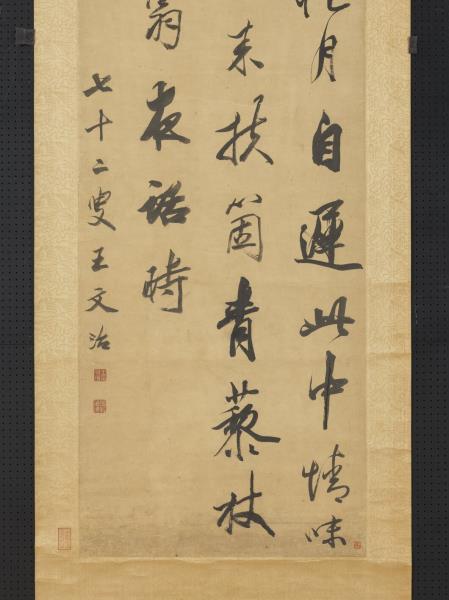 月自遲此中情味
来扶箇青藜杖
翁夜話時
七十二叟王文治